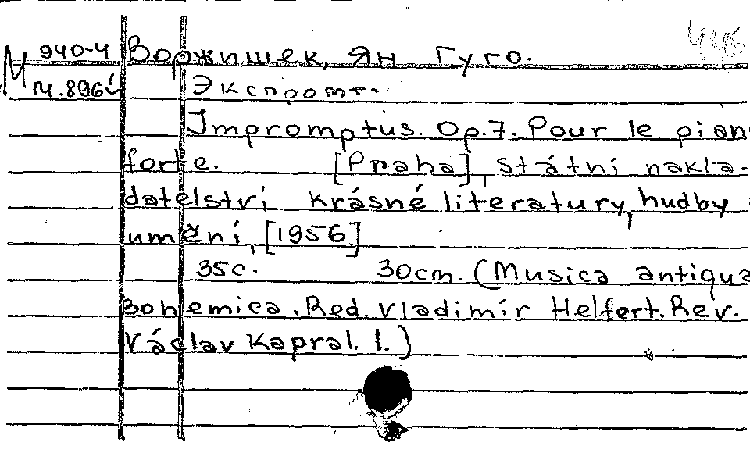 М 940-4 Воржишек, Ян Гуго.
Экспромт.
Impromptus. Op.7. Pour le pian
forte. [Praha], státní nakla-
datelství krásné literatury, hudby
umění, [1956]
35c. 30cm. (Musica antiqua
Bohemica. Red. Vladimír Helfert. Rev.
Václav Kapral. 1.)